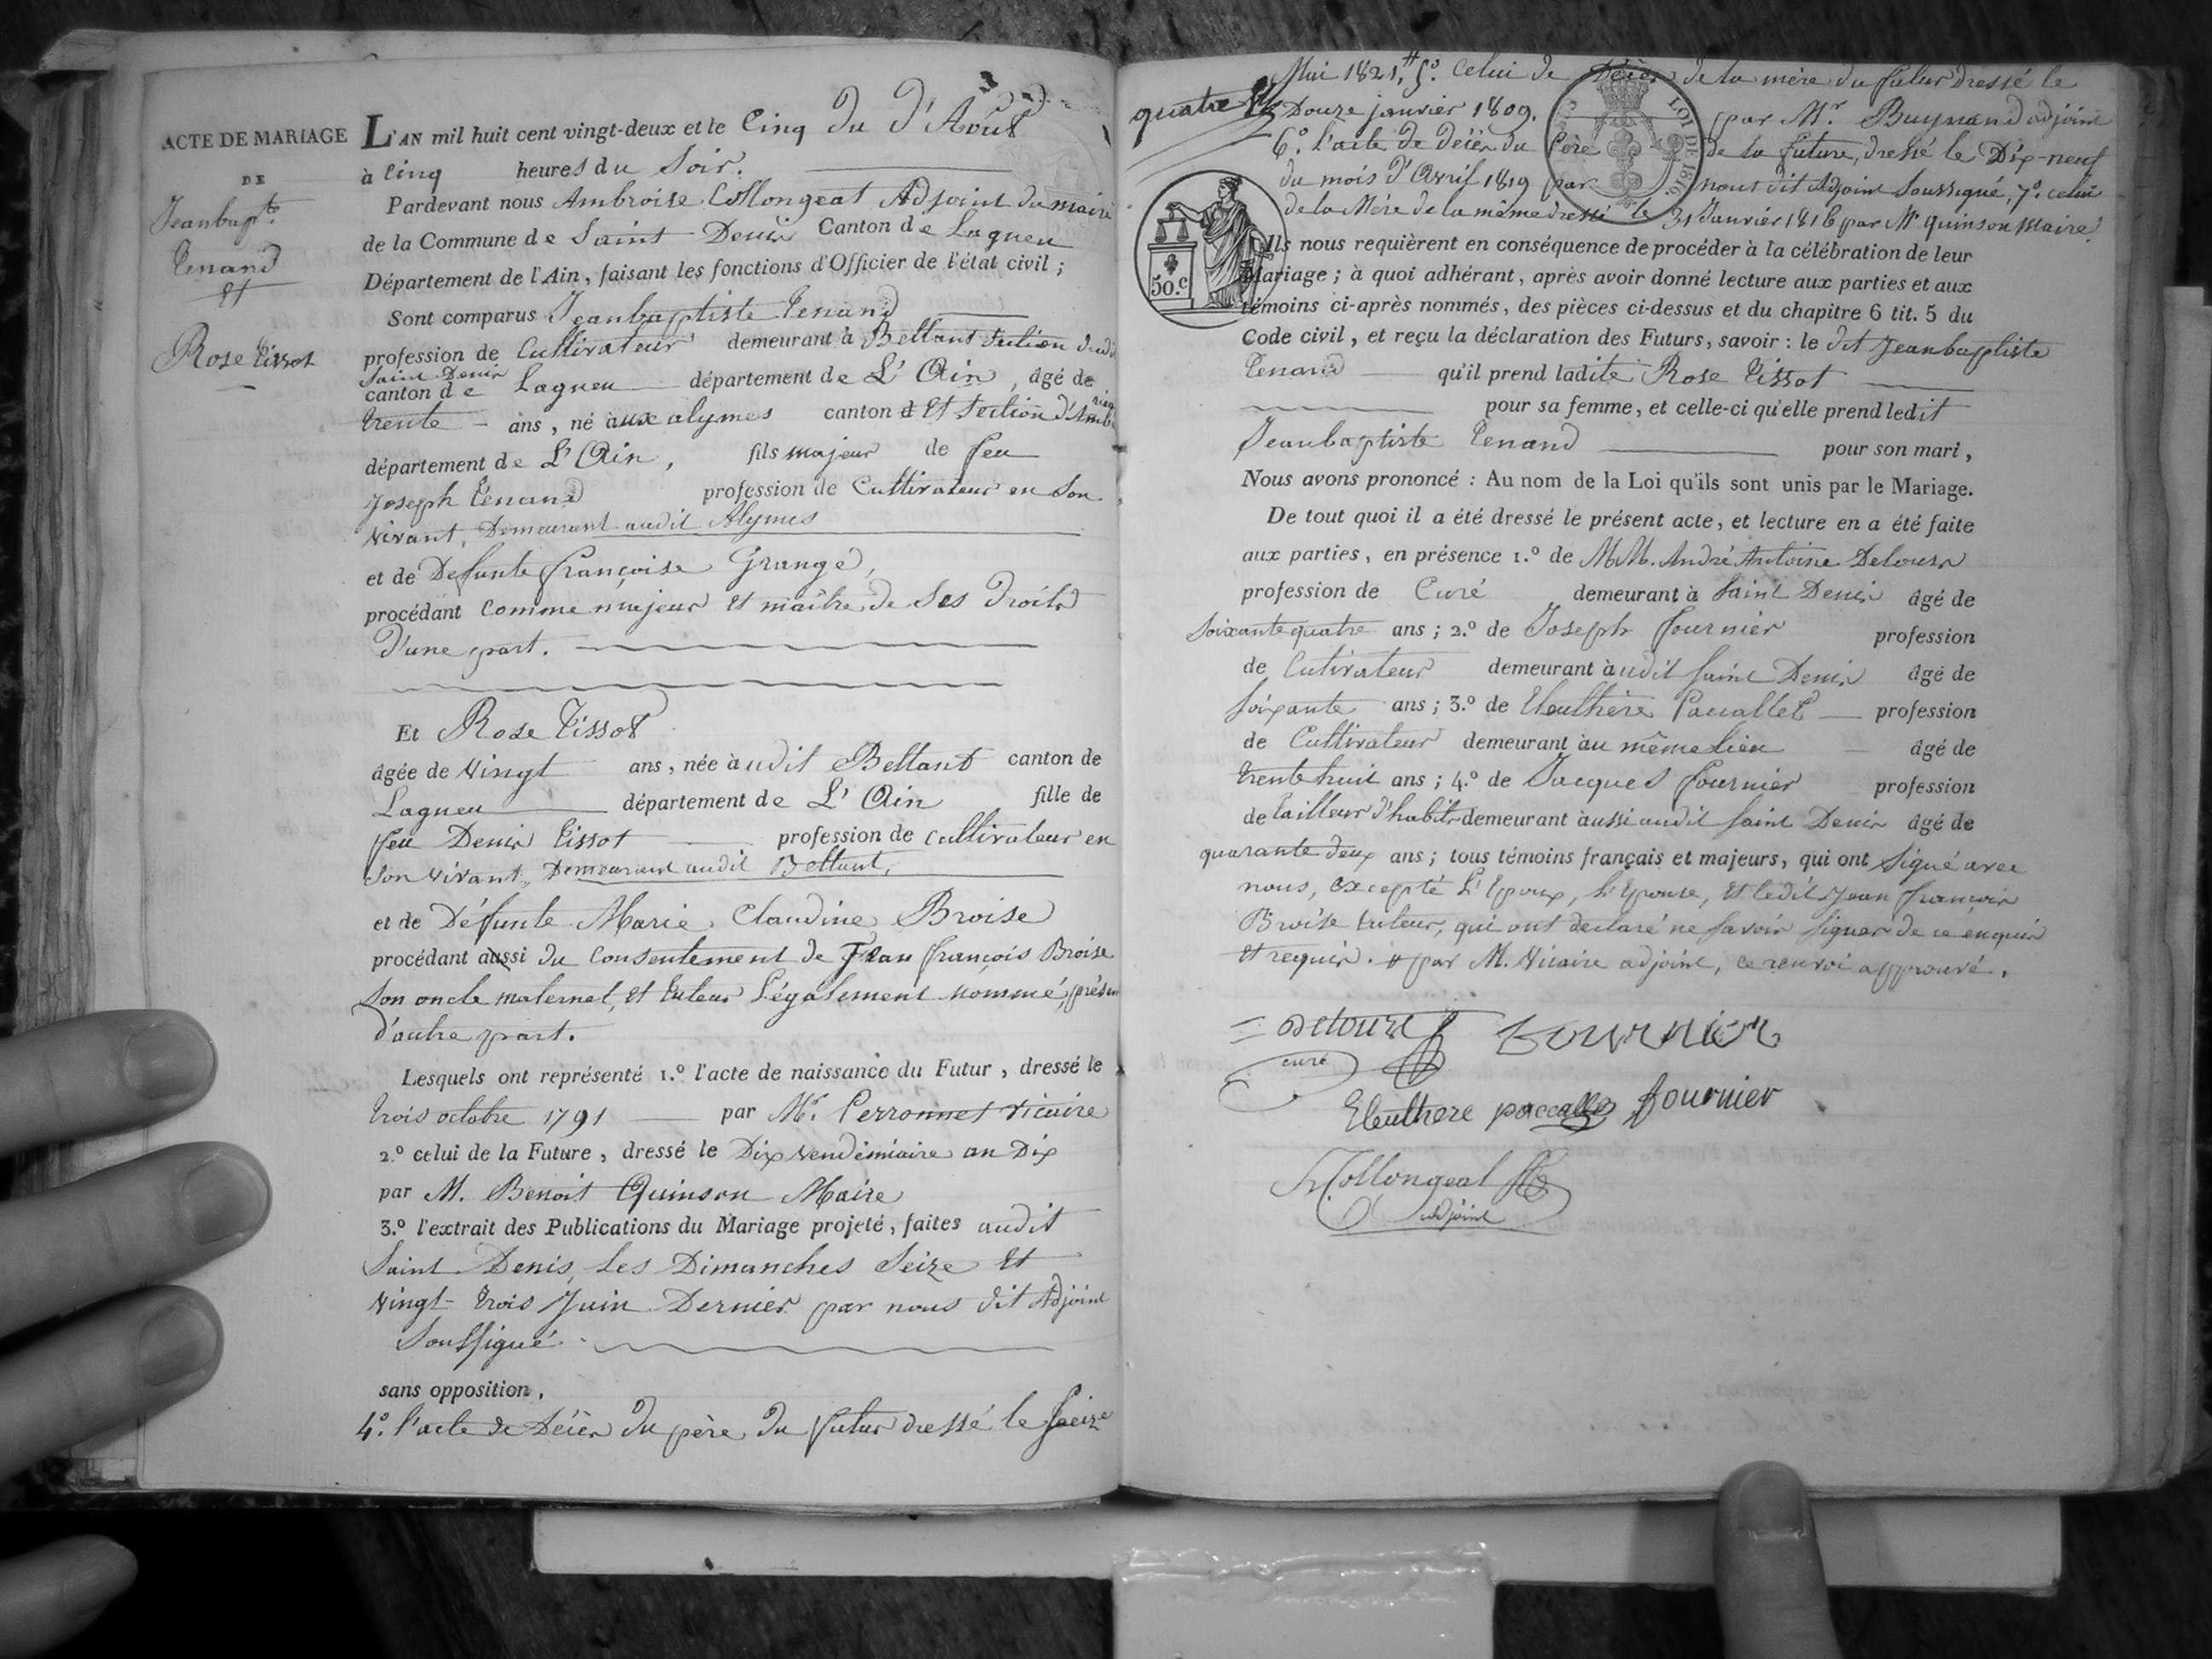 ACTE DE MARIAGE
DE
Jeanbapte.
Tenand
et
Rose Tissot
L'AN mil huit cent vingt-deux et le Cinq du d'Août
à Cinq heures du Soir.
Pardevant nous Ambroise Collongeat Adjoint du maire
de la Commune de Saint Denis Canton de Lagneu
Département de l'Ain, faisant les fonctions d'Officier de l'état civil ;
Sont comparus Jeanbaptiste Tenand
profession de Cultivateur demeurant à Bettant Section dudit
Saint Denis
canton de Lagneu département de L'Ain, âgé de
trente ans, né aux alymes canton et Section d'Ambérieu
département de L'Ain, fils majeur de feu
Joseph Tenand profession de Cultivateur en Son
vivant, Demeurant audit Alymes
et de Defunte françoise Grange,
procédant Comme majeur et maître de Ses Droits
D'une part.
Et Rose Tissot
âgée de vingt ans, née audit Bettant canton de
Lagneu département de L'Ain fille de
feu Denis Tissot profession de cultivateur en
Son vivant, Demeurant audit Bettant,
et de Défunte Marie Claudine Broise
procédant aussi du Consentement de Jean françois Broise
Son oncle maternel, et tuteur Légalement nommé, présent
d'autre part.
Lesquels ont représenté 1.º l'acte de naissance du Futur, dressé le
trois octobre 1791 par Mr. Perronnet vicaire
2.º celui de la Future, dressé le Dix vendémiaire an Dix
par M. Benoit Quinson Maire
3.º l'extrait des Publications du Mariage projeté, faites audit
Saint Denis, Les Dimanches Seize et
vingt-trois Juin Dernier par nous dit Adjoint
Soussigné
sans opposition,
4º. l'acte de Décès du père du futur dressé le Seize
Mai 1821,# 5º. Celui de Décès de la mère du futur dressé le
quatre
Douze janvier 1809. par Mr. Buynand adjoint
6º. l'acte de décès du Père de la future, dressé le Dix-neuf
du mois d'Avril 1819 par nous dit Adjoint Soussigné, 7º. celui
de la Mère de la même dressé le 31 Janvier 1816 par Mr quinson Maire.
LOI DE 1816
50.c
Ils nous requièrent en conséquence de procéder à la célébration de leur
Mariage ; à quoi adhérant, après avoir donné lecture aux parties et aux
témoins ci-après nommés, des pièces ci-dessus et du chapitre 6 tit. 5 du
Code civil, et reçu la déclaration des Futurs, savoir : le dit Jeanbaptiste
Tenand qu'il prend ladite Rose Tissot
pour sa femme, et celle-ci qu'elle prend ledit
Jeanbaptiste Tenand pour son mari,
Nous avons prononcé : Au nom de la Loi qu'ils sont unis par le Mariage.
De tout quoi il a été dressé le présent acte, et lecture en a été faite
aux parties, en présence 1.º de MM. André Antoine Detours
profession de Curé demeurant à Saint Denis âgé de
Soixante quatre ans ; 2.º de Joseph fournier profession
de Cutivateur demeurant audit Saint Denis âgé de
Soixante ans ; 3.º de Eleuthère Paccallet profession
de Cultivateur demeurant au même lieu âgé de
trente huit ans ; 4.º de Jacques fournier profession
de tailleur d'habits demeurant aussi audit Saint Denis âgé de
quarante deux ans ; tous témoins français et majeurs, qui ont Signé avec
nous, excepté L'Epoux, L'Epouse, et ledit Jean françois
Broise tuteur, qui ont declaré ne Savoir Signer de ce enquis
et requis. # par M. Vicaire adjoint, ce renvoi approuvé.
Detours fournier
curé
Eleuthere paccallet fournier
Collongeat
adjoint